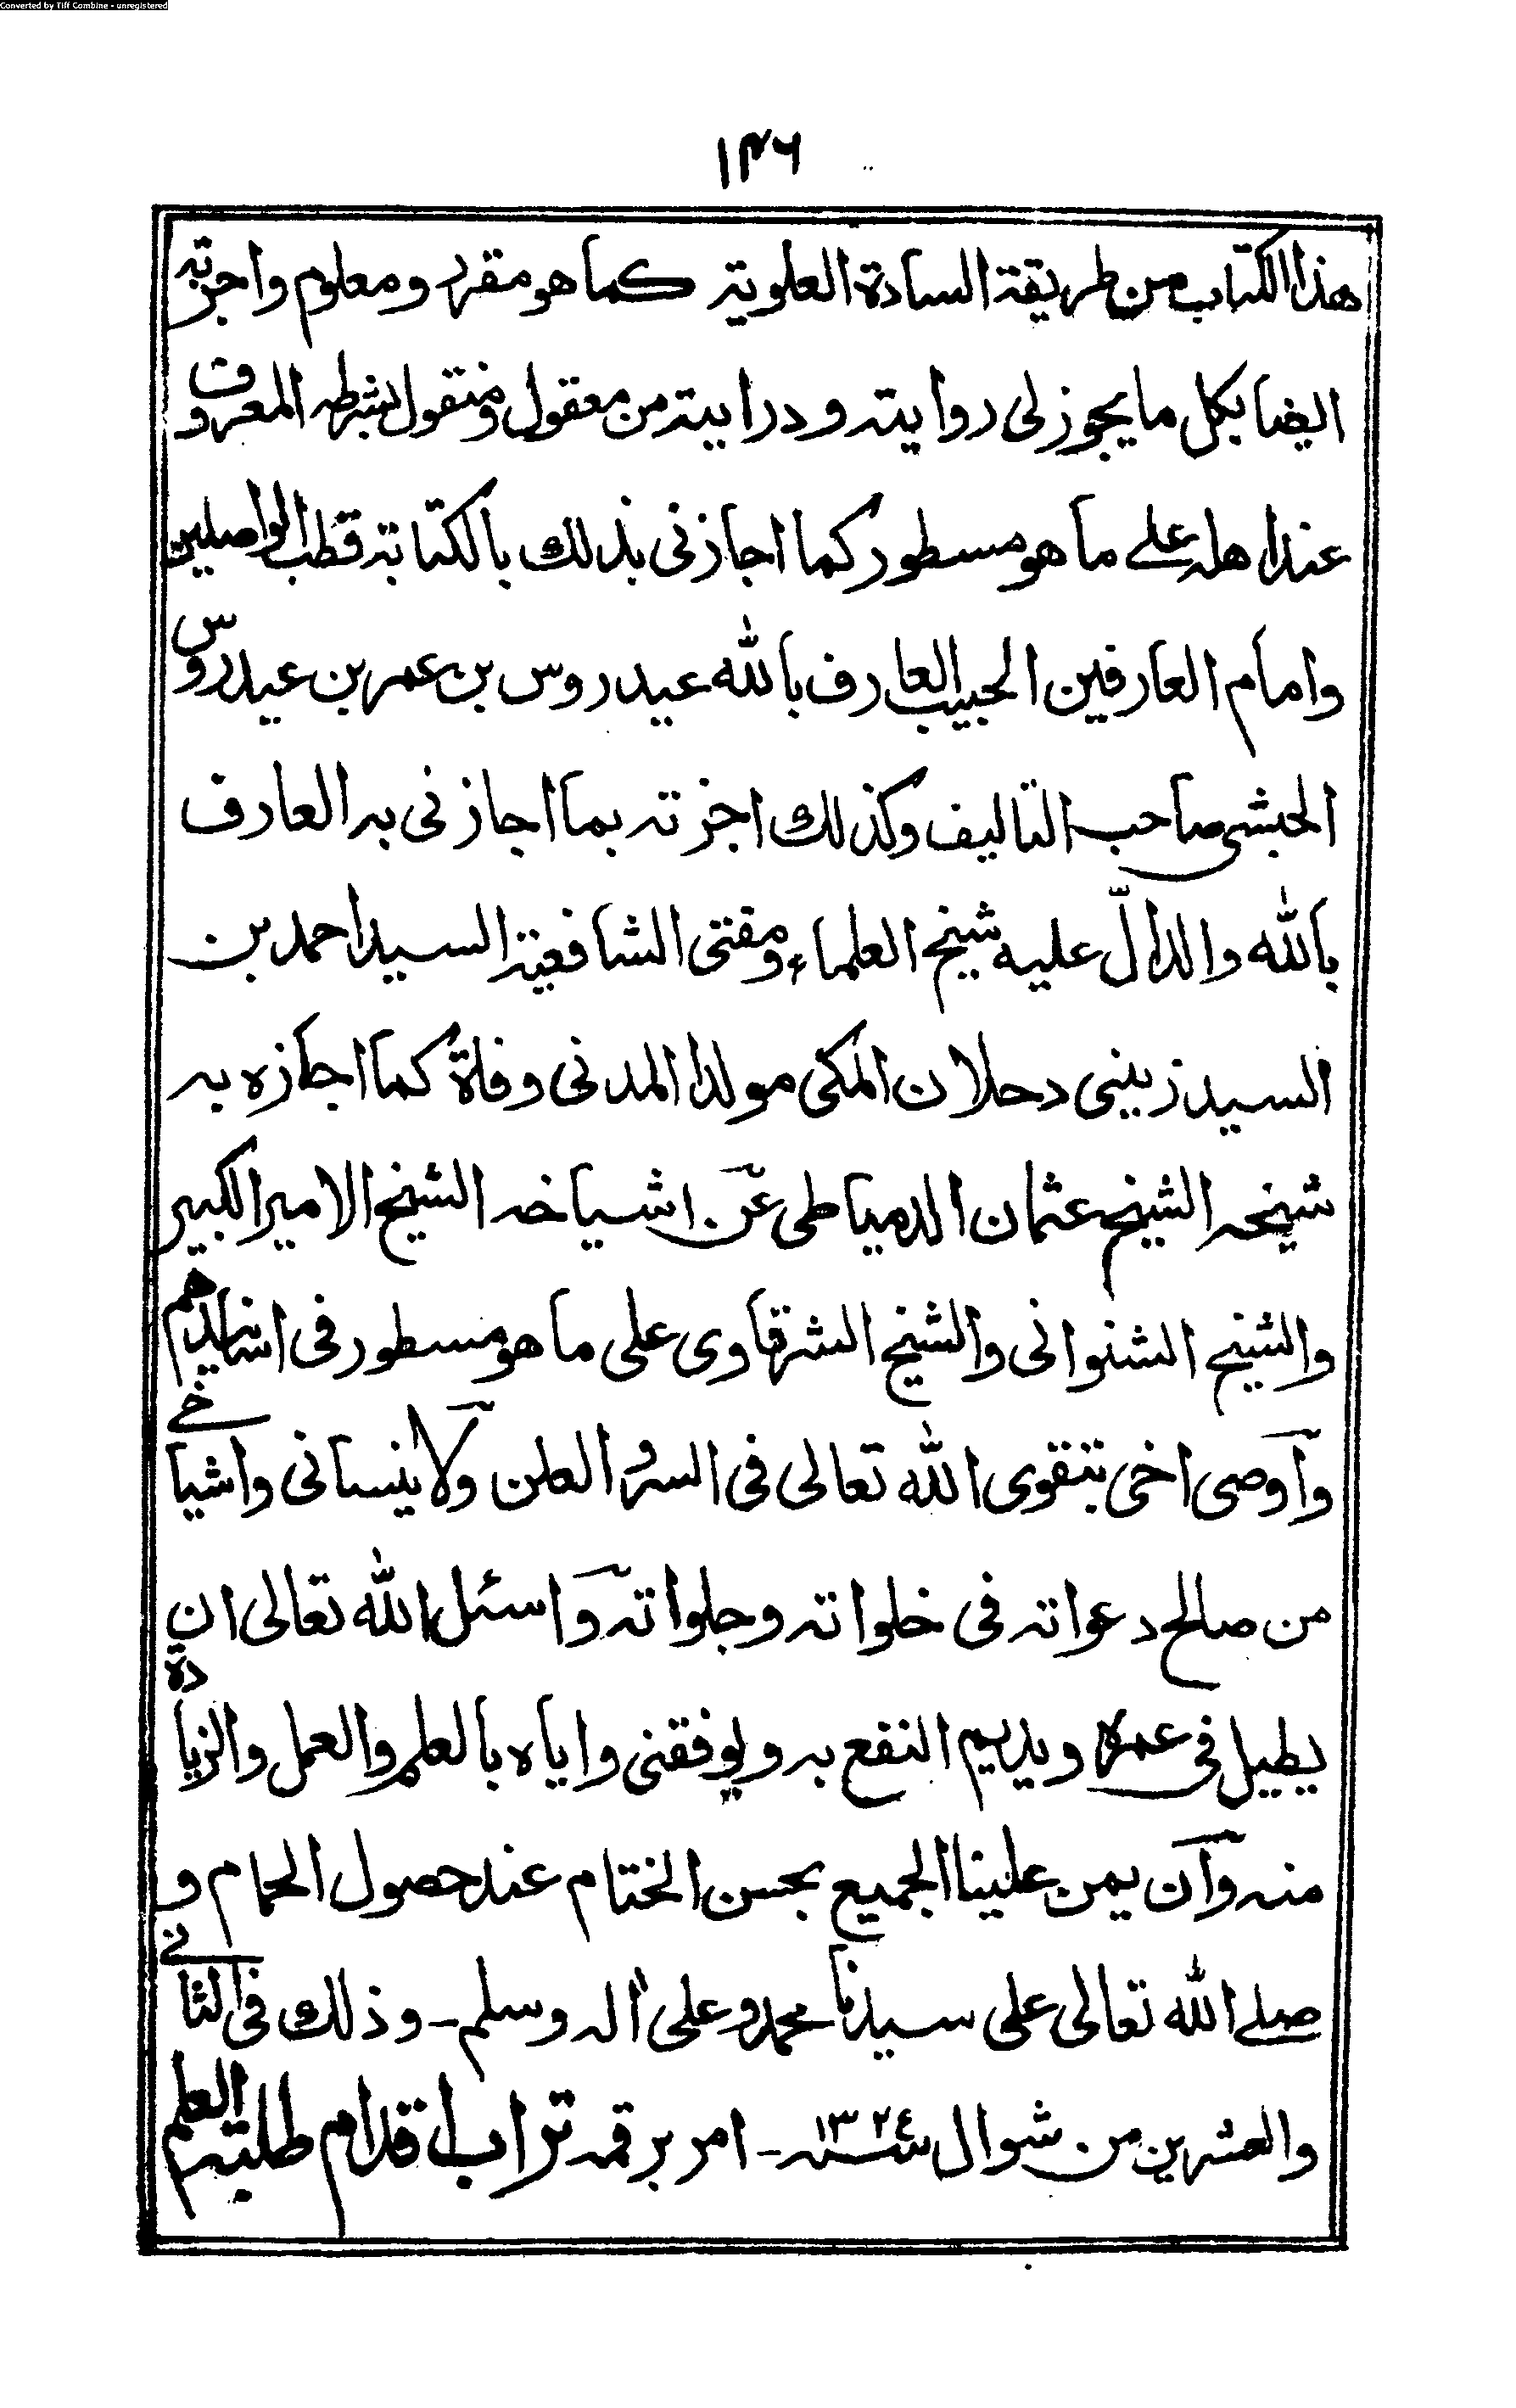 Converted by Tiff Combine - unregistered
١٣٦
هذا الكتاب من طريقة السادة العلوية كما هو مقرر ومعلوم واجزته
ايضا بكل ما يجوز لى روايته ودرايته من معقول ومنقول بشرطه المعروف
عند اهله على ما هو مسطور كما اجازنى بذلك بالكتابة قطب الواصلين
وامام العارفين الحبيب العارف بالله عيدروس بن عمر بن عيدروس
الحبشى صاحب التاليف وكذلك اجزته بما اجازنى به العارف
بالله والدالّ عليه شيخ العلماء ومفتى الشافعية السيد احمد بن
السيد زينى دحلان المكى مولدا المدنى وفاة كما اجازه به
شيخه الشيخ عثمان الدمياطى عن اشياخه الشيخ الامير الكبير
والشيخ الشنوانى والشيخ الشرقاوى على ما هو مسطور فى اسانيدهم
وأوصى اخى بتقوى الله تعالى فى السر والعلن ولا ينسانى واشياخے
من صالح دعواته فى خلواته وجلواته واسئل الله تعالى ان
يطيل فى عمره ويديم النفع به ويوفقنى واياه بالعلم والعمل والزيادة
منه وان يمن علينا الجميع بحسن الختام عند حصول الحمام و
صلے الله تعالى على سيدنا محمد وعلى اله وسلم - وذلك فى الثانے
والعشرين من شوال سنہ ١٣٢٤ - امر برقمه تراب اقدام طلبة العلم